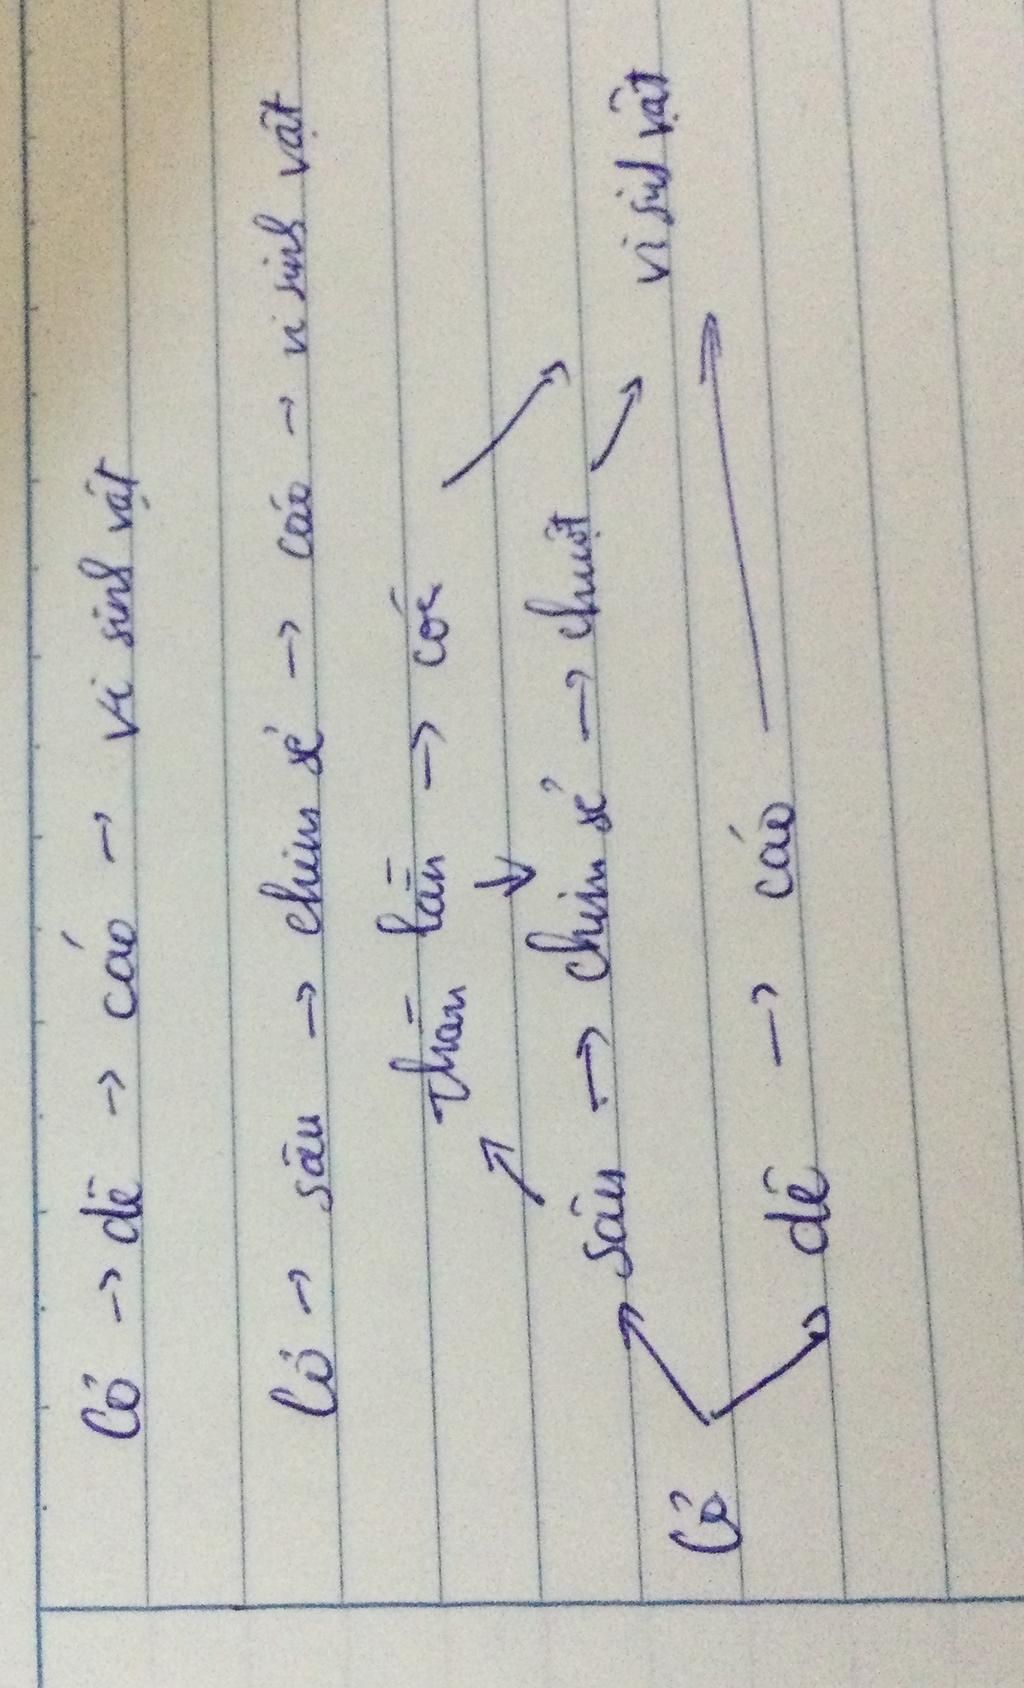 Cỏ → dê → cáo → vi sinh vật
Cỏ → sâu → chim sẻ → cáo → vi sinh vật
thằn lằn → cóc
sâu → chim sẻ → chuột
vi sinh vật
Cỏ
dê → cáo